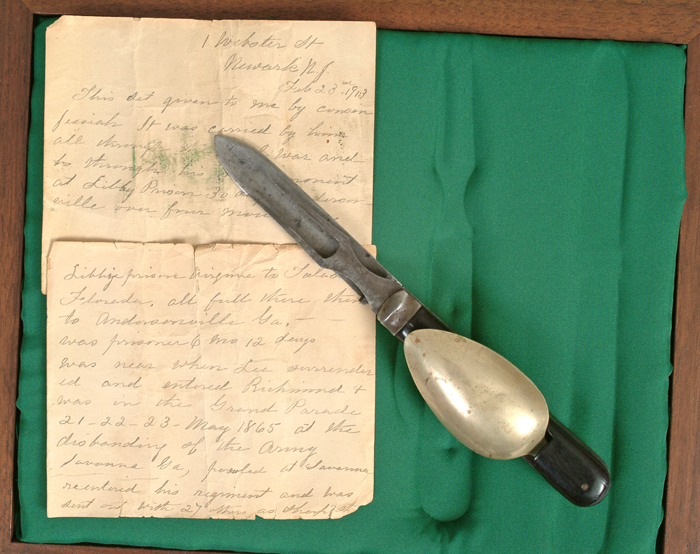 1 Webster St
Newark N.J.
Feb 23rd 1913
This set given to me by cousin
It was carried by him
all War and
to through his
at Libby Prison 30
ville over four
Libby prison Virginia to
Floreda. all full there then
to Andersonville Ga.—
was prisoner 6 mo 12 days
was near when Lee surrender
ed and entered Richmond +
was in the Grand Parade
21-22-23- May 1865 at the
disbanding of the Army
Savanna Ga, paroled at Savanna
reentered his regiment and was
sent out with 27 others as